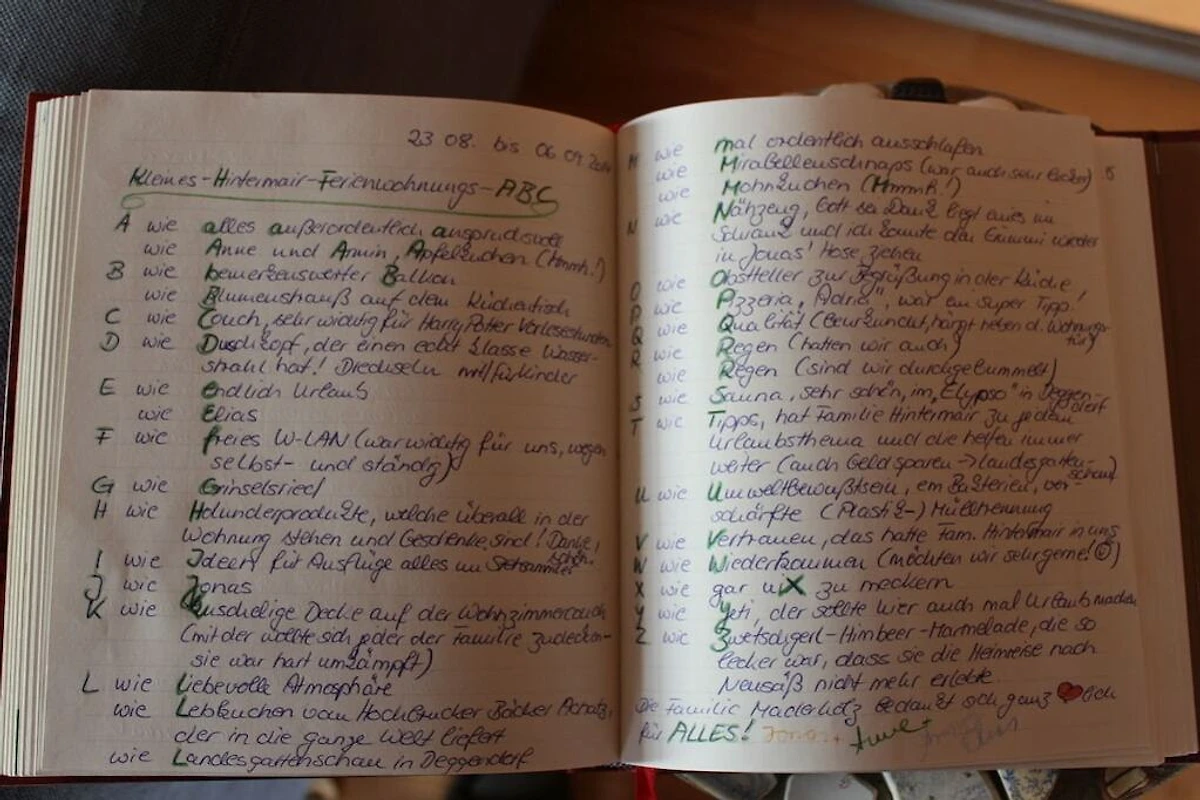 23 08. bis 06 09.
Kleines-Hintermair-Ferienwohnungs-ABC
A wie alles außerordentlich anspruchsvoll
wie Anne und Armin, Apfelkuchen (Hmmh!)
B wie bemerkenswerter Balkon
wie Blumenstrauß auf dem Küchentisch
C wie Couch, sehr wichtig für Harry Potter Vorlesestunden
D wie Duschkopf, der einen echt klasse Wasser-
strahl hat! Drechseln mit/für Kinder
E wie endlich Urlaub
wie Elias
F wie freies W-LAN (war wichtig für uns, wegen
selbst- und ständig)
G wie Grinselsried
H wie Holunderprodukte, welche überall in der
Wohnung stehen und Geschenke sind! Danke,
schön.
I wie Ideen für Ausflüge alles im
J wie Jonas
K wie Kuschelige Decke auf der Wohnzimmercouch
(mit der wollte sich jeder der Familie zudecken-
sie war hart umkämpft)
L wie Liebevolle Atmosphäre
wie Lebkuchen vom Hochbrucker Bäcker
der in die ganze Welt liefert
wie Landesgartenschau in Deggendorf
M wie mal ordentlich ausschlafen
wie Mirabellenschnaps (war auch sehr lecker)
wie Mohnkuchen (Hmmh!)
N wie Nähzeug, Gott sei Dank liegt eines im
Schrank und ich konnte den Gummi wieder
in Jonas' Hose ziehen
O wie Obstteller zur Begrüßung in der Küche
P wie Pizzeria "Adria", war ein super Tipp!
Q wie Qualität (beurkundet, hängt neben d. Wohnungs-
tür)
R wie Regen (hatten wir auch)
wie Regen (sind wir durchgebummelt)
S wie Sauna, sehr schön, im "Elypso" in Deggen-
dorf
T wie Tipps, hat Familie Hintermair zu jedem
Urlaubsthema und die helfen immer
weiter (auch Geld sparen -> Landesgarten-
schau)
U wie Umweltbewußtsein, ver-
schärfte (Plastik-) Mülltrennung
V wie Vertrauen, das hatte Fam. Hintermair in uns
W wie Wiederkommen (möchten wir sehr gerne! ☺)
X wie gar niX zu meckern
Y wie Yeti, der sollte hier auch mal Urlaub machen
Z wie Zwetschgerl-Himbeer-Marmelade, die so
lecker war, dass sie die Heimreise nach
Neusäß nicht mehr erlebte.
Die Familie Maderholz bedankt sich ganz ❤lich
für ALLES! Jonas + Anne
Elias